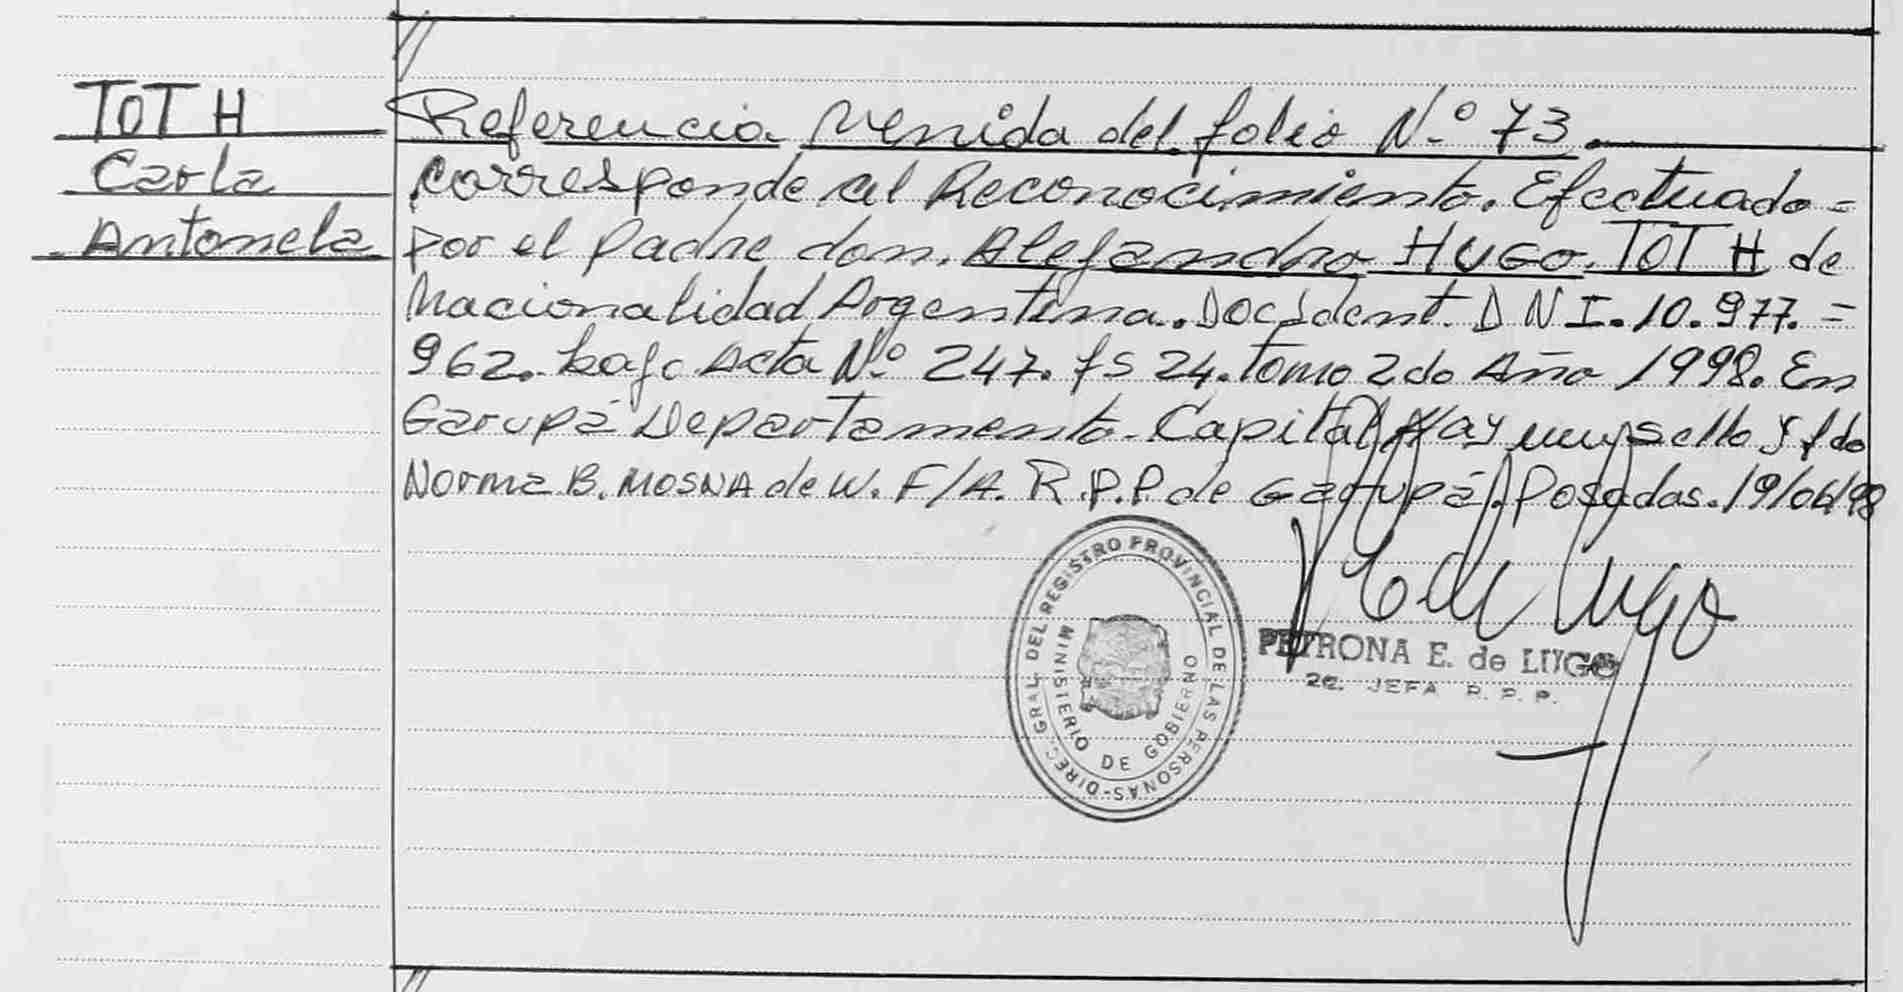 TOTH
Carla
Antonela
Referencia Venida del folio N.º 73.
corresponde al Reconocimiento. Efectuado =
por el padre don. Alejandro HUGO. TOTH de
Nacionalidad Argentina. Doc Ident. D N I. 10. 977. =
962. bajo Acta Nº 247. fs 24. Tomo 2do Año 1998. En
Garupá Departamento. Capital Hay un sello y fdo
Norma B. MOSNA de W. F/A. R.P.P de Garupá. Posadas. 19/06/98
DIREC. GRAL. DEL REGISTRO PROVINCIAL DE LAS PERSONAS-
MINISTERIO DE GOBIERNO
PETRONA E. de LUGO
2a. JEFA R. P. P.